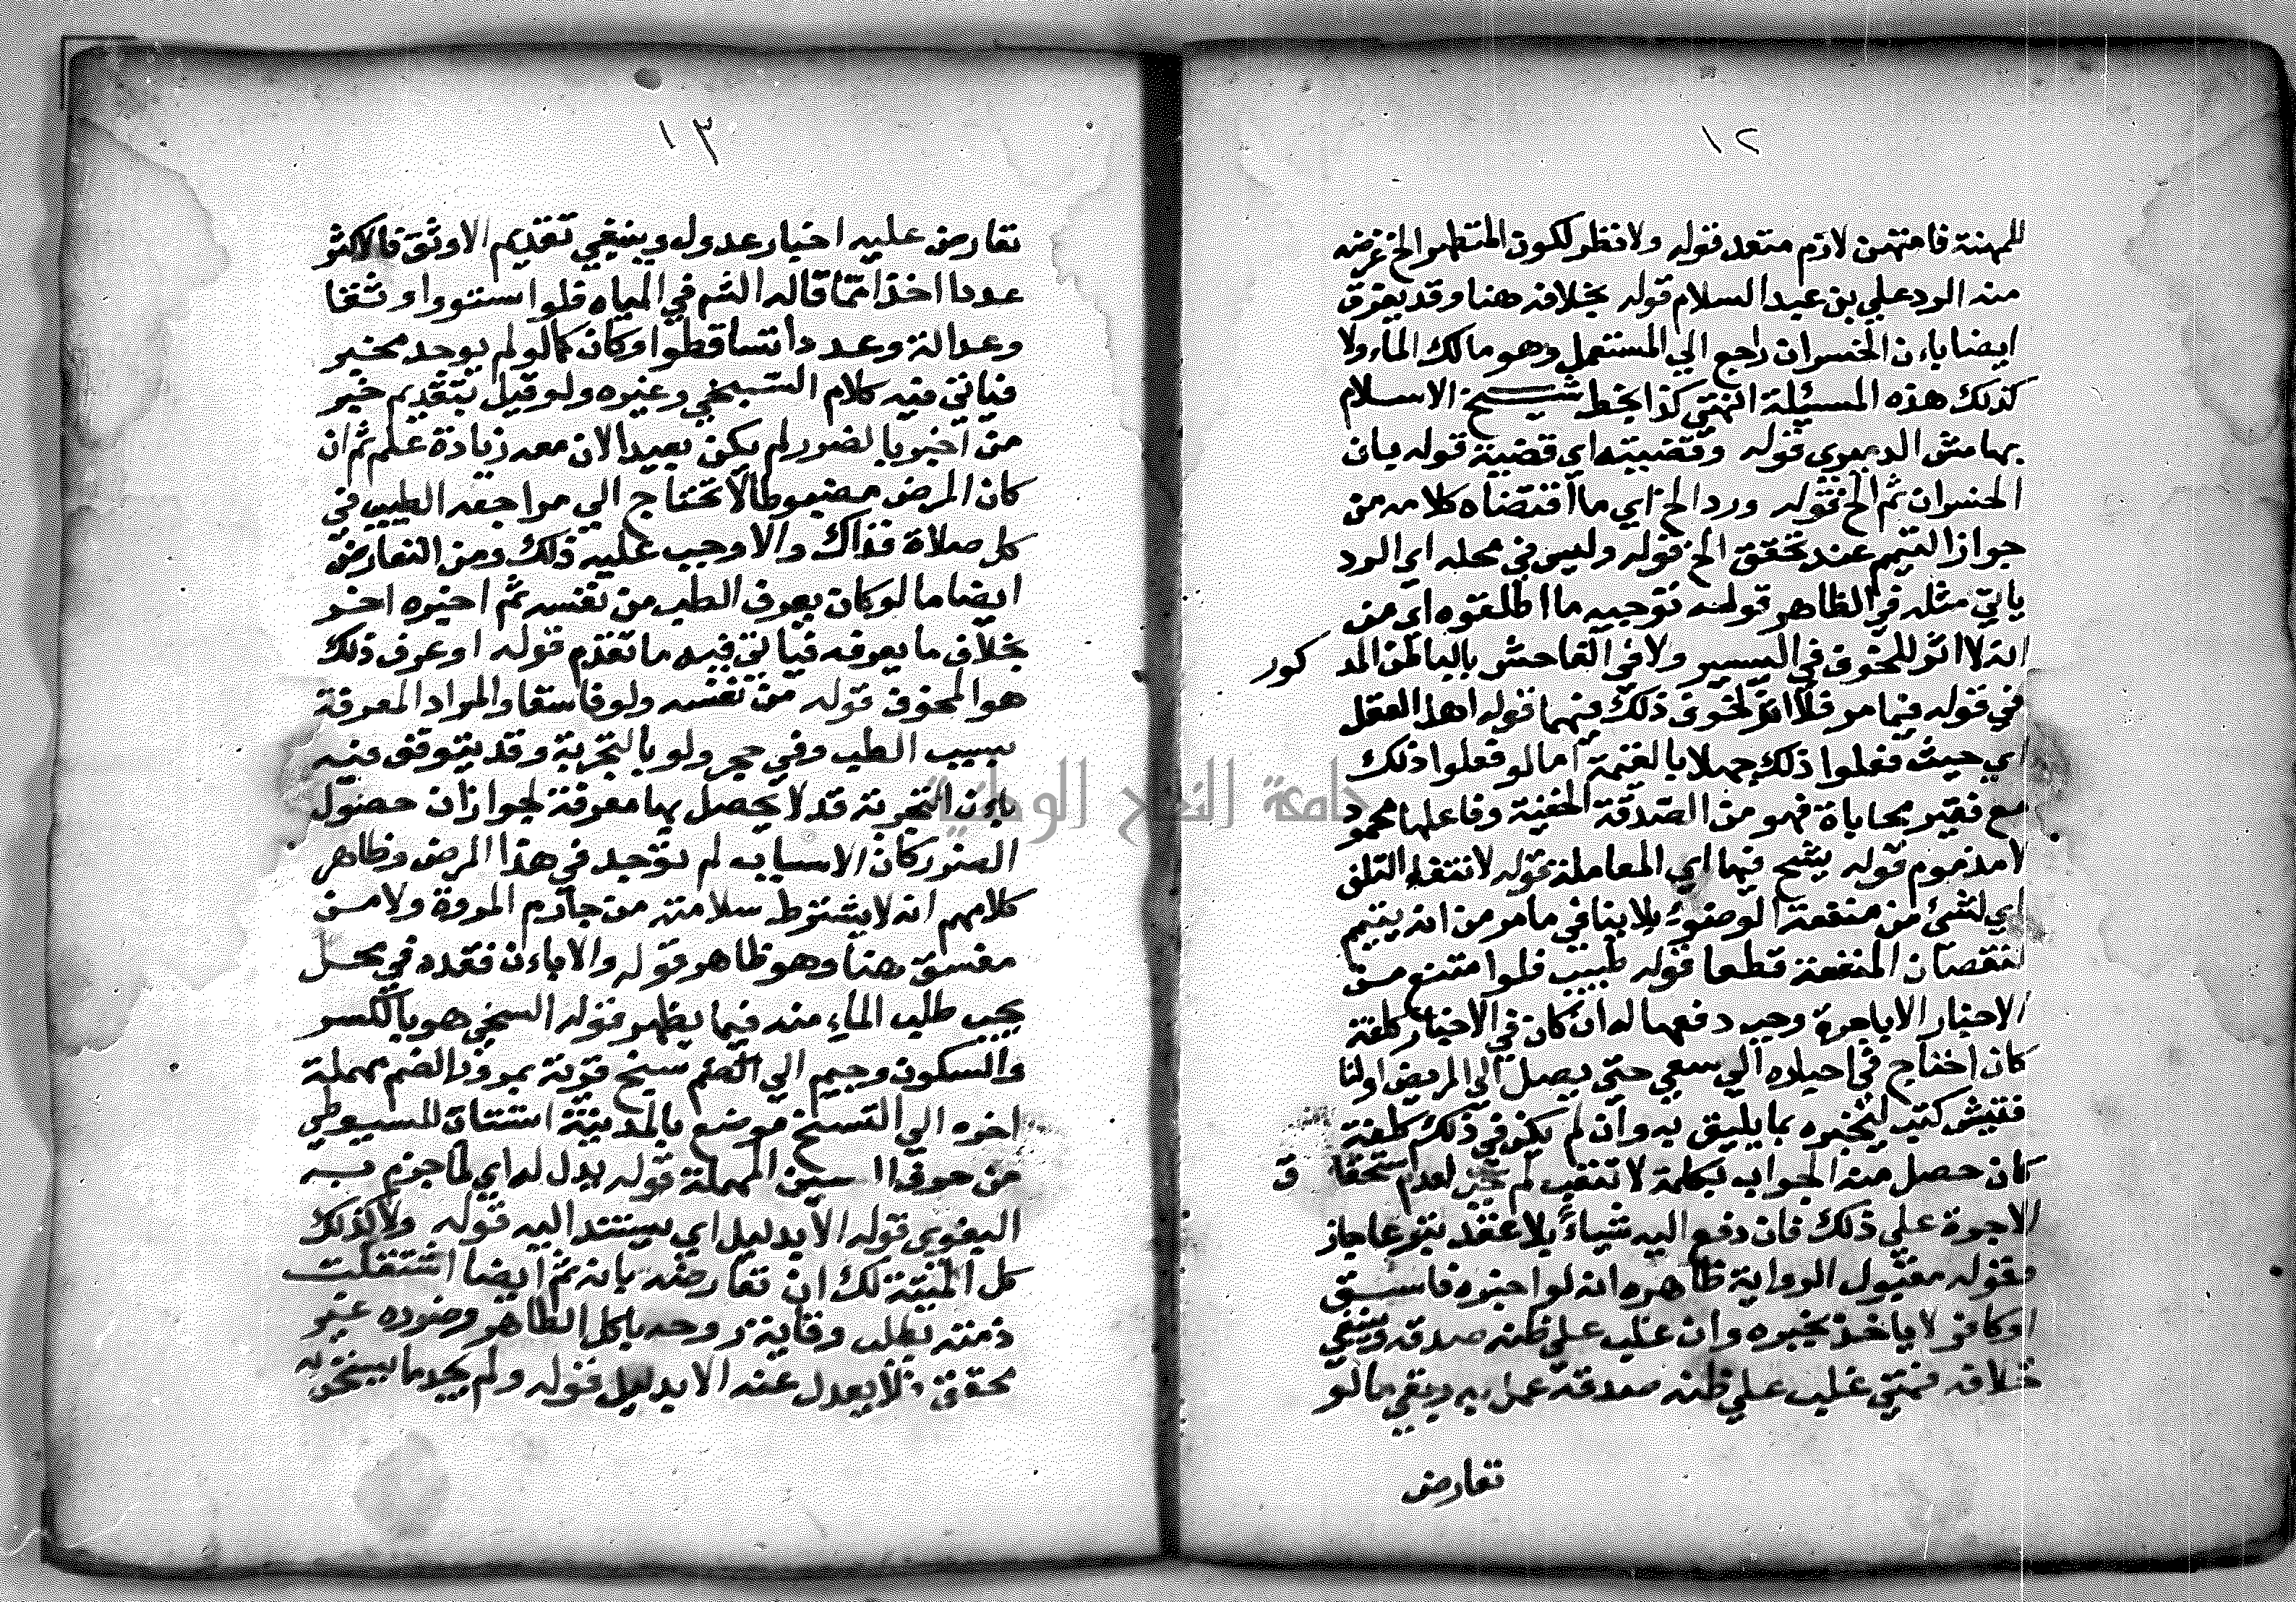 ١٢
للمهنة فامتهن لازم متعد قوله ولا نظر لكون المتطهر الخ غرضه
منه الرد علي بن عبد السلام قوله بخلافه هنا وقد يفرق
ايضا باءن الخسران راجع الي المستعمل وهو مالك الماء ولا
كذلك هذه المسئلة انتهي كذا بخط شيخ الاسلام
بهامش الدميري قوله وقضيته اي قضية قوله بان
الخسران ثم الخ قوله ورد الخ اي ما اقتضاه كلامه من
جواز التيمم عند تحقق الخ قوله وليس في محله اي الرد
ياتي مثله في الظاهر قوله توجيه ما اطلقوه اي من
انه لا اثر للخوف في اليسير ولا في الفاحش بالباطن المذ كور
في قوله فيما مر فلا اثر لخوف ذلك فيهما قوله اهل العقل
اي حيث فعلوا ذلك جهلا بالغنمة اما لو فعلوا ذلك
مع فقير محاباة فهو من الصدقة الخفية وفاعلها محمود
لا مذموم قوله يشح فيها اي المعاملة قوله لانتفاء التلف
اي لشئ من منفعة الوضوء بلا ينافي ما مر من انه يتيمم
لنقصان المنفعة قطعا قوله طبيب فلو امتنع من
الاخبار الا باجرة وجب دفعها له ان كان في الاخبار كلفة
كان احتاج في اخباره الي سعي حتي يصل الي المريض او لنا
فتيش كتب ليخبره بما يليق به وان لم يكن في ذلك كلفة
كان حصل منه الجواب بكلمة لا تتعب لم تجز لعدم استحقا ق
الاجرة علي ذلك فان دفع اليه شياء بلا عقد تبرعا جاز
قوله مقبول الرواية ظاهره انه لو اخبره فاسق
او كافر لا ياخذ بخبره وان غلب علي ظنه صدقه وينبغي
خلافه فمتي غلب علي ظنه صدقه عمل به وبقي ما لو
تعارض
١٣
تعارض عليه اخبار عدول وينبغي تقديم الاوثق فالاكثر
عددا اخذا مما قاله الشم في المياه فلو استووا وثقا
وعدالة وعددا تساقطوا وكان كما لو لم يوجد مخبر
فياتي فيه كلام السبخي وغيره ولو قيل بتقديم خبر
من اخبر بالضرر لم يكن بعيدا لان معه زيادة علم ثم ان
كان المرض مضبوطا لا تحتاج الي مراجعه الطبيب في
كل صلاة فذاك والا وجب عليه ذلك ومن التعارض
ايضا ما لو كان يعرف الطب من نفسه ثم اخبره اخر
بخلاف ما يعرفه فياتي فيه ما تقدم قوله او عرف ذلك
هو المخوف قوله من نفسه ولو فاسقا والمراد المعرفة
بسبب الطب وفي حجر ولو بالتجربة وقد يتوقف فيه
باءن التجربة قد لا يحصل بها معرفة لجواز ان حصول
الضرر كان لاسباب لم توجد في هذا المرض وظاهر
كلامهم انه لا يشترط سلامته من جازم المروة ولا من
مفسق هنا وهو ظاهر قوله والا باءن فقده في محل
يجب طلب الماء منه فيما يظهر قوله السخي هو بالكسر
والسكون وجيم الي سنج قرية بمرو وبالضم مهملة
اخره الي السنح موضع بالمدينة انتهي للسيوطي
من حرف السين المهملة قوله بدل له اي لما جزم به
البغوي قوله الا بدليل اي يستند اليه قوله ولا كذلك
كل الميتة لك ان تعارضه بانه ثم ايضا اشتغلت
ذمته بطلب وقاية روحه باكل الطاهر وضرره غير
محقق فلا يعدل عنه الا بدليل قوله ولم يجد ما يسخن به
جامعة النجاح الوطنية